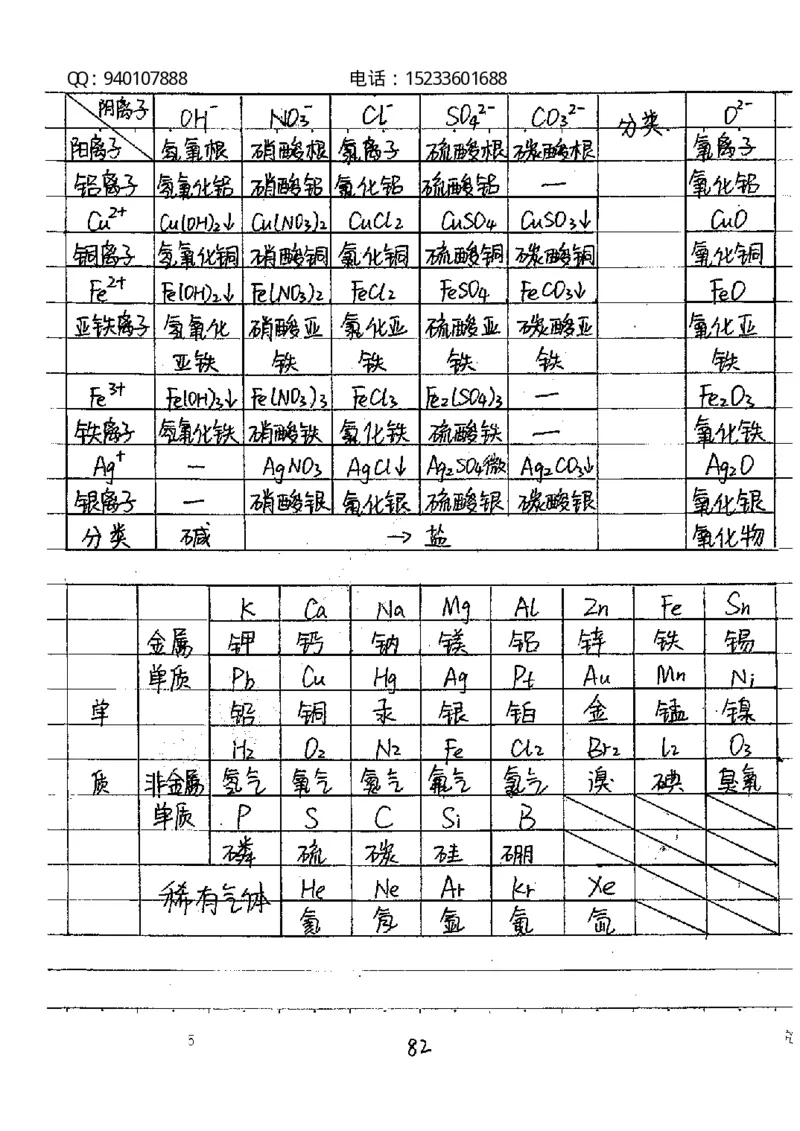 QQ：940107888 电话：15233601688
阴离子 OH⁻ NO₃⁻ Cl⁻ SO₄²⁻ CO₃²⁻ 分类 O²⁻
阳离子 氢氧根 硝酸根 氯离子 硫酸根 碳酸根 氧离子
铝离子 氢氧化铝 硝酸铝 氯化铝 硫酸铝 — 氧化铝
Cu²⁺ Cu(OH)₂↓ Cu(NO₃)₂ CuCl₂ CuSO₄ CuSO₃↓ CuO
铜离子 氢氧化铜 硝酸铜 氯化铜 硫酸铜 碳酸铜 氧化铜
Fe²⁺ Fe(OH)₂↓ Fe(NO₃)₂ FeCl₂ FeSO₄ FeCO₃↓ FeO
亚铁离子 氢氧化 硝酸亚 氯化亚 硫酸亚 碳酸亚 氧化亚
亚铁 铁 铁 铁 铁 铁
Fe³⁺ Fe(OH)₃↓ Fe(NO₃)₃ FeCl₃ Fe₂(SO₄)₃ — Fe₂O₃
铁离子 氢氧化铁 硝酸铁 氯化铁 硫酸铁 — 氧化铁
Ag⁺ — AgNO₃ AgCl↓ Ag₂SO₄微 Ag₂CO₃↓ Ag₂O
银离子 — 硝酸银 氯化银 硫酸银 碳酸银 氧化银
分类 碱 → 盐 氧化物
K Ca Na Mg Al Zn Fe Sn
金属 钾 钙 钠 镁 铝 锌 铁 锡
单质 Pb Cu Hg Ag Pt Au Mn Ni
单 铅 铜 汞 银 铂 金 锰 镍
H₂ O₂ N₂ Fe Cl₂ Br₂ I₂ O₃
质 非金属 氢气 氧气 氮气 氟气 氯气 溴 碘 臭氧
单质 P S C Si B
磷 硫 碳 硅 硼
稀有气体 He Ne Ar Kr Xe
氦 氖 氩 氪 氙
5
82